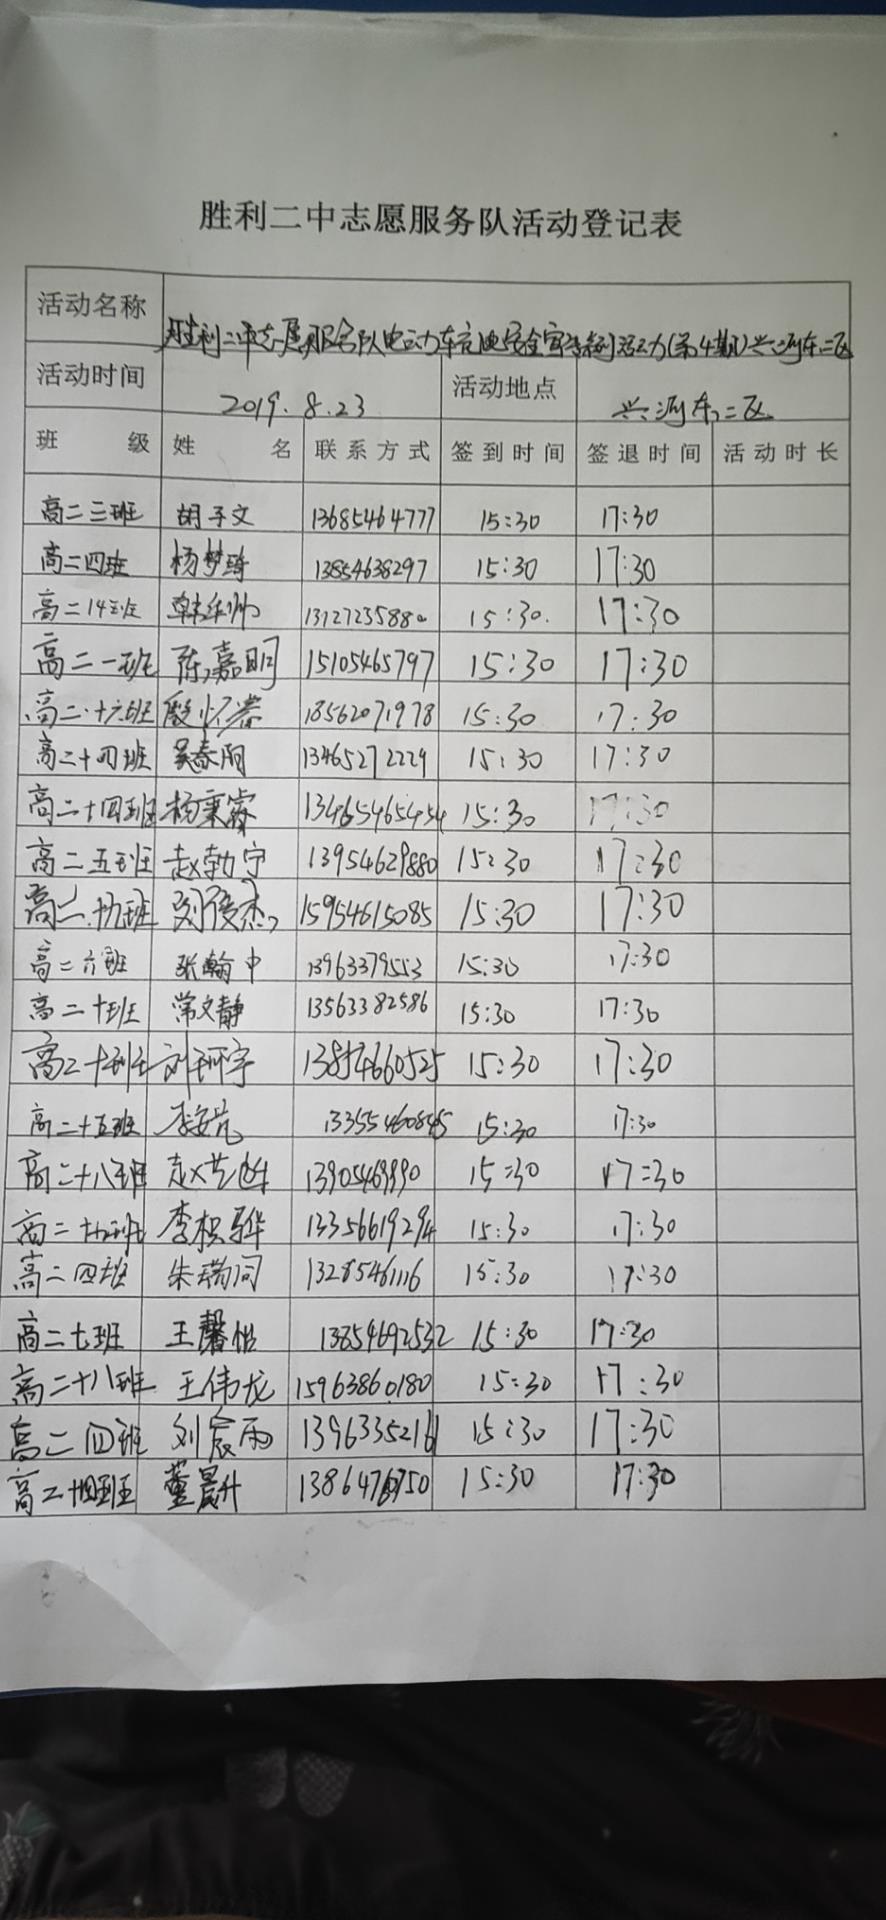 胜利二中志愿服务队活动登记表
活动名称 胜利二中志愿服务队电动车充电安全宣传系列活动(第4期)兴河东二区
活动时间 2019.8.23 活动地点 兴河东二区
班级 姓名 联系方式 签到时间 签退时间 活动时长
高二三班 胡子文 13685464777 15:30 17:30
高二四班 杨梦琦 13854638297 15:30 17:30
高二14班 韩华帅 13127235880 15:30. 17:30
高二一班 陈嘉明 15105465797 15:30 17:30
高二十六班 殷怀 18562071978 15:30 17:30
高二十四班 吴春阳 13465272229 15:30 17:30
高二十四班 杨秉睿 13465465454 15:30 17:30
高二五班 赵勃宁 13954629880 15:30 17:30
高二十九班 刘俊杰 15954615085 15:30 17:30
高二六班 张瀚中 13963379553 15:30 17:30
高二十班 常文静 13563382586 15:30 17:30
高二十班 刘珂宇 13854660525 15:30 17:30
高二十五班 李 13355460845 15:30 17:30
高二十八班 赵艺 13905469990 15:30 17:30
高二十九班 李桢骅 13356619294 15:30 17:30
高二四班 朱瑞同 13285461116 15:30 17:30
高二七班 王馨怡 13854692532 15:30 17:30
高二十八班 王伟龙 15963860180 15:30 17:30
高二四班 刘宸雨 13963352161 15:30 17:30
高二十四班 董晨升 15:30 17:30